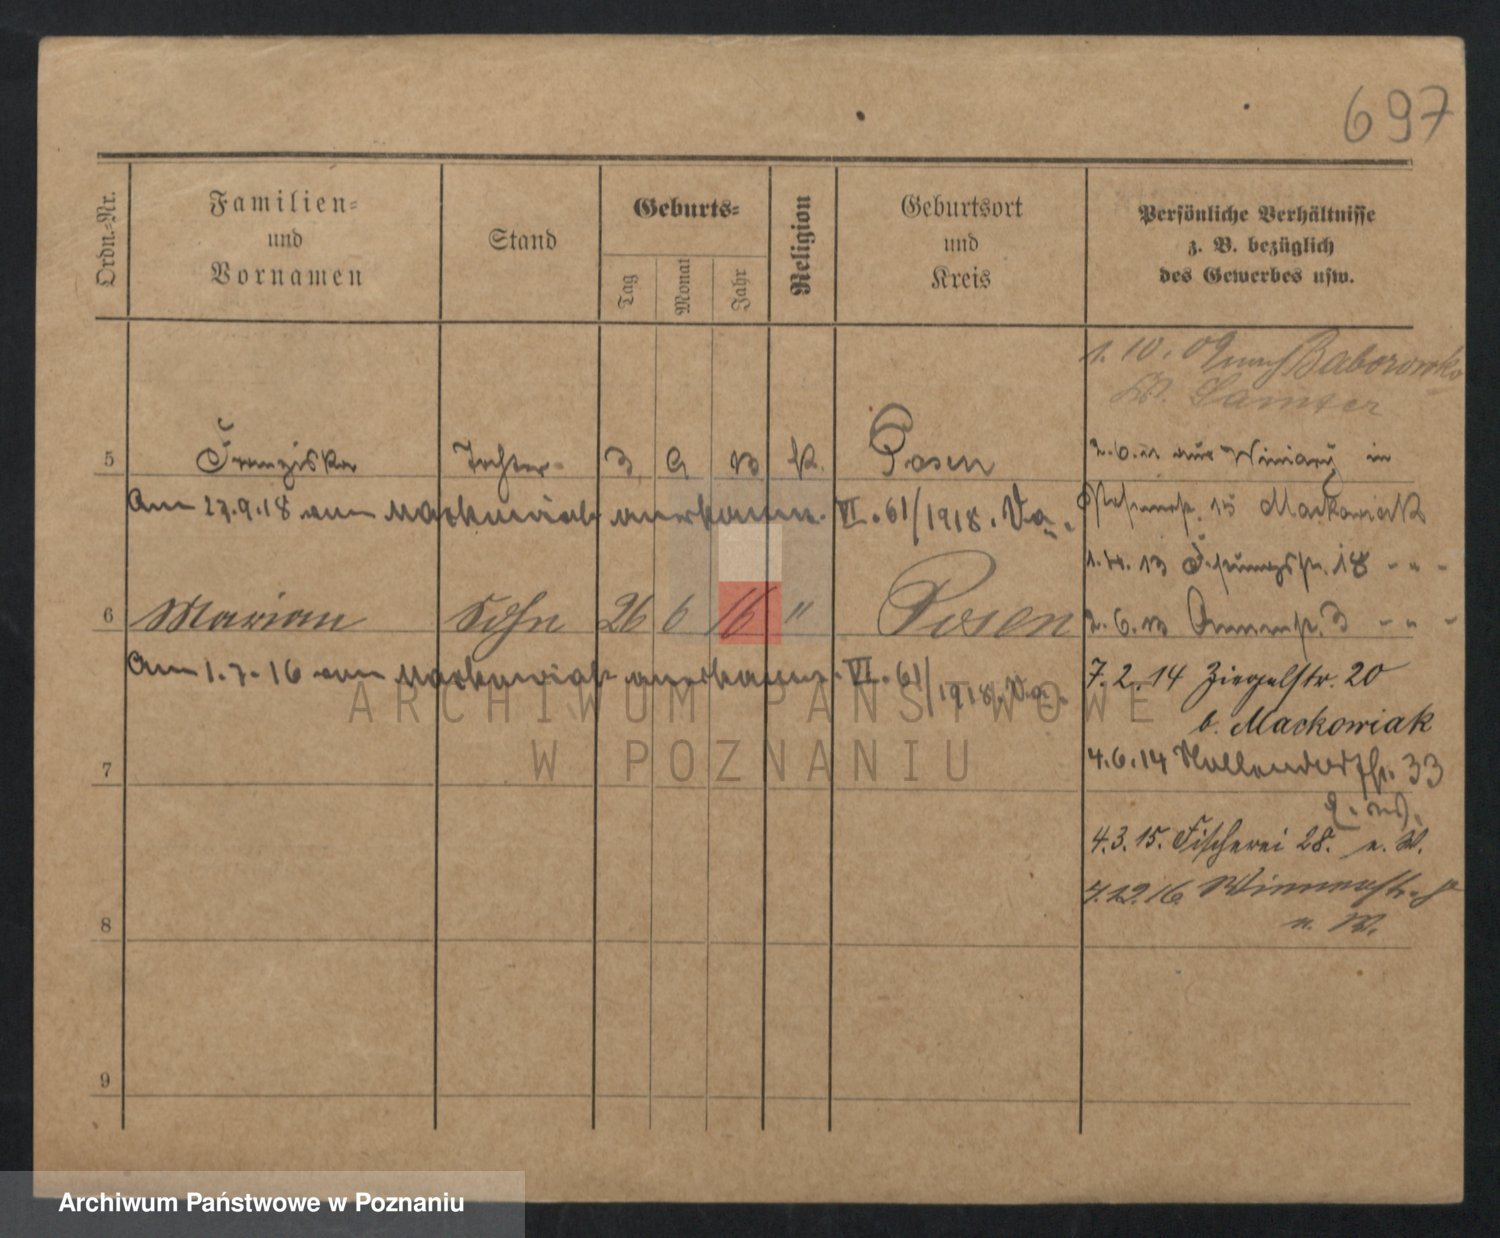 697
Ordn.-Nr.
Familien-
und
Vornamen
Stand
Geburts-
Tag
Monat
Jahr
Religion
Geburtsort
und
Kreis
Persönliche Verhältnisse
z. B. bezüglich
des Gewerbes usw.
1. 10. 09 nach Baborowko
Kr. Samter
5 Franziska Tochter 3 9 13 k. Posen
2. 6. aus Winiary in
Am 27.9.18 von Mackowiak anerkannt. VI. 61/1918. Va.
15 Mackowiak
1. 4. 13 18 " "
6 Marian Sohn 26 6 16 " Posen
2. 6. 13 3 " "
Am 1.7.16 von Mackowiak anerkannt. VI. 61/1918. Va.
7. 2. 14 Ziegelstr. 20
b. Mackowiak
7
4. 6. 14 Hollendorfstr. 33
4. 3. 15. Fischerei 28. e. W.
7. 12. 16
8
9
ARCHIWUM PAŃSTWOWE
W POZNANIU
Archiwum Państwowe w Poznaniu